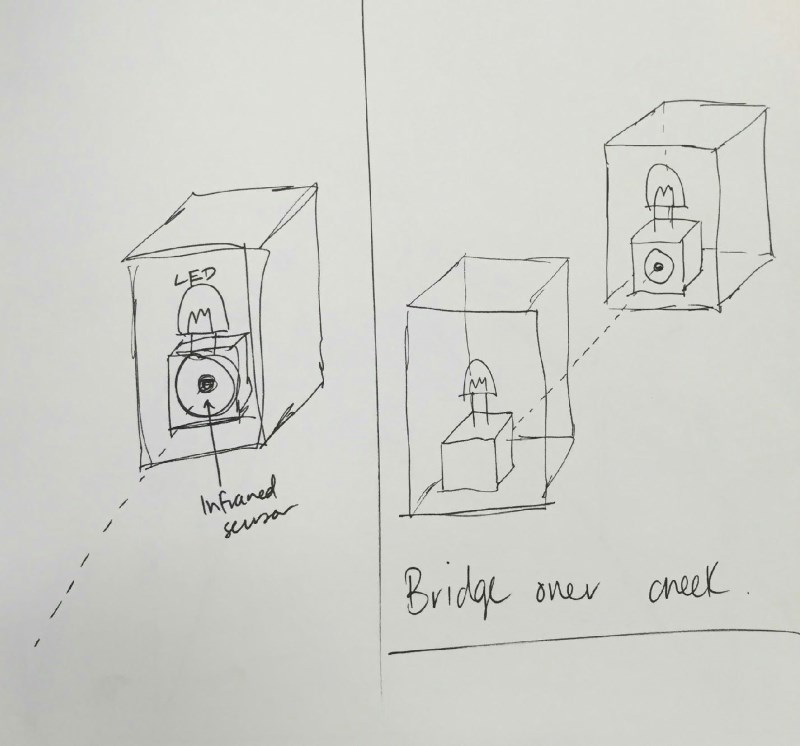 LED
Infrared
sensor
Bridge over creek.